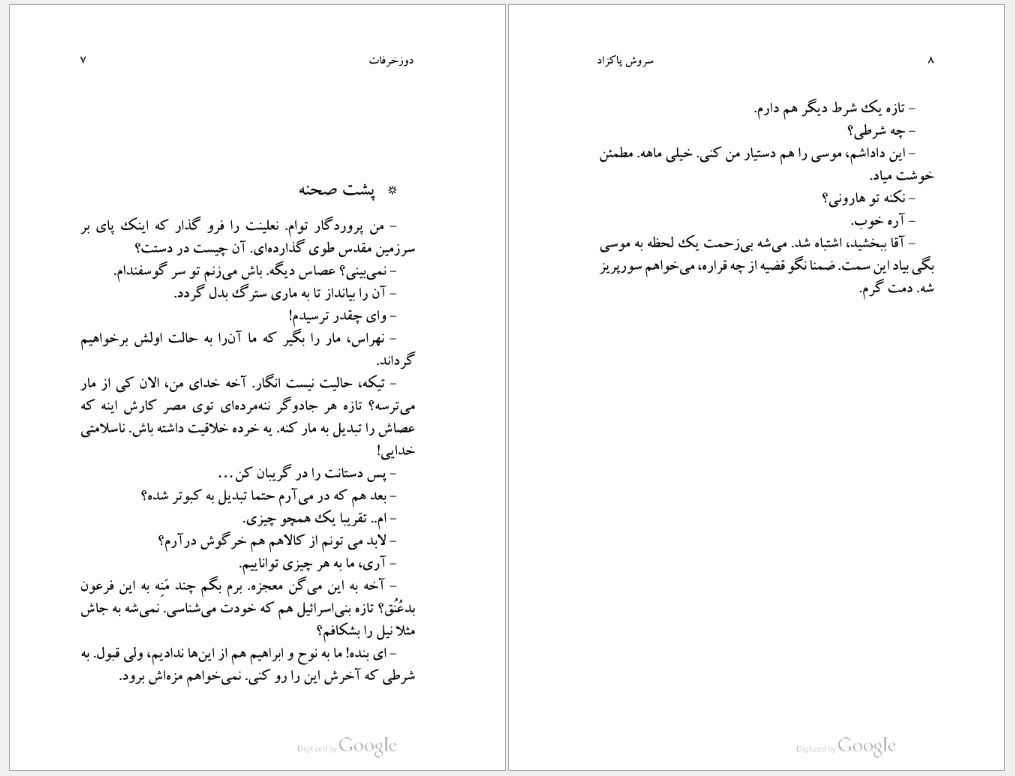 دوزخرفات ۷
❊ پشت صحنه
– من پروردگار توام. نعلینت را فرو گذار که اینک پای بر
سرزمین مقدس طوی گذارده‌ای. آن چیست در دستت؟
– نمی‌بینی؟ عصاس دیگه. باش می‌زنم تو سر گوسفندام.
– آن را بیانداز تا به ماری سترگ بدل گردد.
– وای چقدر ترسیدم!
– نهراس، مار را بگیر که ما آن‌را به حالت اولش برخواهیم
گرداند.
– تیکه، حالیت نیست انگار. آخه خدای من، الان کی از مار
می‌ترسه؟ تازه هر جادوگر ننه‌مرده‌ای توی مصر کارش اینه که
عصاش را تبدیل به مار کنه. یه خرده خلاقیت داشته باش. ناسلامتی
خدایی!
– پس دستانت را در گریبان کن...
– بعد هم که در می‌آرم حتما تبدیل به کبوتر شده؟
– ام.. تقریبا یک همچو چیزی.
– لابد می تونم از کالاهم هم خرگوش درآرم؟
– آری، ما به هر چیزی تواناییم.
– آخه به این می‌گن معجزه. برم بگم چند مَنِه به این فرعون
بدعُنُق؟ تازه بنی‌اسرائیل هم که خودت می‌شناسی. نمی‌شه به جاش
مثلا نیل را بشکافم؟
– ای بنده! ما به نوح و ابراهیم هم از این‌ها ندادیم، ولی قبول. به
شرطی که آخرش این را رو کنی. نمی‌خواهم مزه‌اش برود.
Digitized by Google
۸ سروش پاکزاد
– تازه یک شرط دیگر هم دارم.
– چه شرطی؟
– این داداشم، موسی را هم دستیار من کنی. خیلی ماهه. مطمئن
خوشت میاد.
– نکنه تو هارونی؟
– آره خوب.
– آقا ببخشید، اشتباه شد. می‌شه بی‌زحمت یک لحظه به موسی
بگی بیاد این سمت. ضمنا نگو قضیه از چه قراره، می‌خواهم سورپریز
شه. دمت گرم.
Digitized by Google